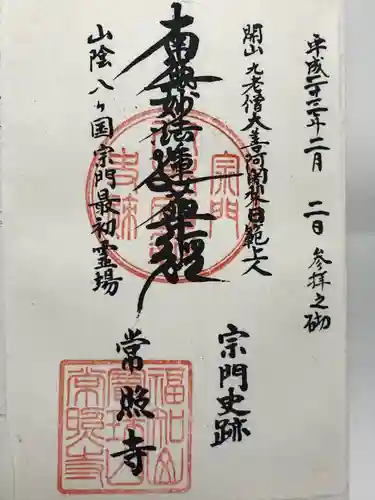 平成二十二年二月二日参拝之砌
開山 九老僧大善阿闍梨日範上人
南無妙法蓮華経
山陰八ヶ国宗門最初霊場
宗門史跡
常照寺
宗門
史跡
福知山
常照寺